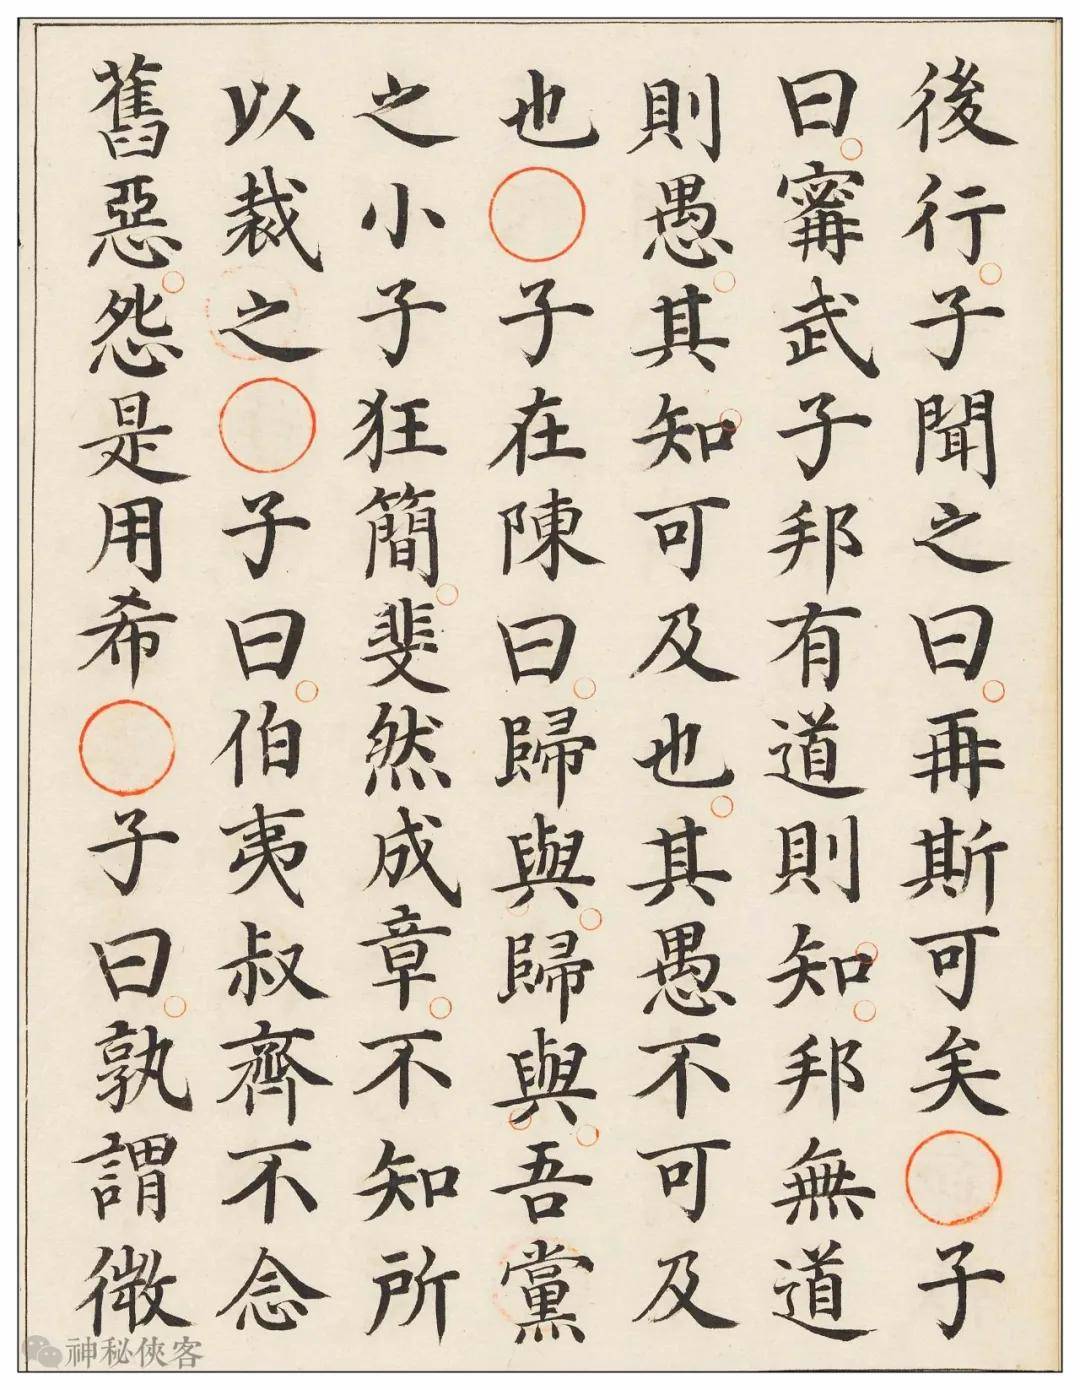 後行子聞之曰再斯可矣○子
曰甯武子邦有道則知邦無道
則愚其知可及也其愚不可及
也○子在陳曰歸與歸與吾黨
之小子狂簡斐然成章不知所
以裁之○子曰伯夷叔齊不念
舊惡怨是用希○子曰孰謂微
神秘俠客